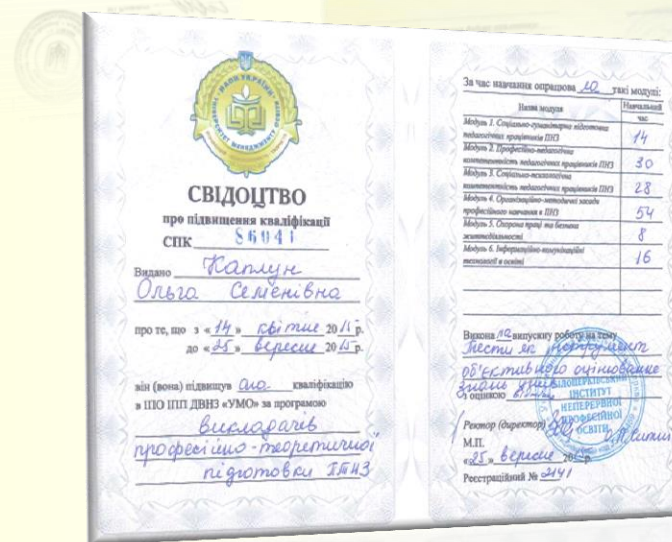 СВІДОЦТВО
про підвищення кваліфікації
СПК 86041
Видано Каплун
Ольга Семенівна
про те, що з «14» квітня 2015 р.
до «25» вересня 2015 р.
він (вона) підвищув ала кваліфікацію
в ІПО ІПП ДВНЗ «УМО» за програмою
викладачів
професійно-теоретичної
підготовки ПТНЗ
За час навчання опрацюва ла такі модулі:
Назва модуля Навчальний час
Модуль 1. Соціально-гуманітарна підготовка
педагогічних працівників ПНЗ 14
Модуль 2. Професійно-педагогічна
компетентність педагогічних працівників ПНЗ 30
Модуль 3. Соціально-психологічна
компетентність педагогічних працівників ПНЗ 28
Модуль 4. Організаційно-методичні засади
професійного навчання в ПНЗ 54
Модуль 5. Охорона праці та безпека
життєдіяльності 8
Модуль 6. Інформаційно-комунікаційні
технології в освіті 16
Викона ла випускну роботу на тему
Тести як інструмент
об'єктивного оцінювання
знань учнів
з оцінкою
БІЛОЦЕРКІВСЬКИЙ
ІНСТИТУТ
НЕПЕРЕРВНОЇ
ПРОФЕСІЙНОЇ
ОСВІТИ
Ректор (директор)
М.П.
«25» вересня 20 р.
Реєстраційний № 2141